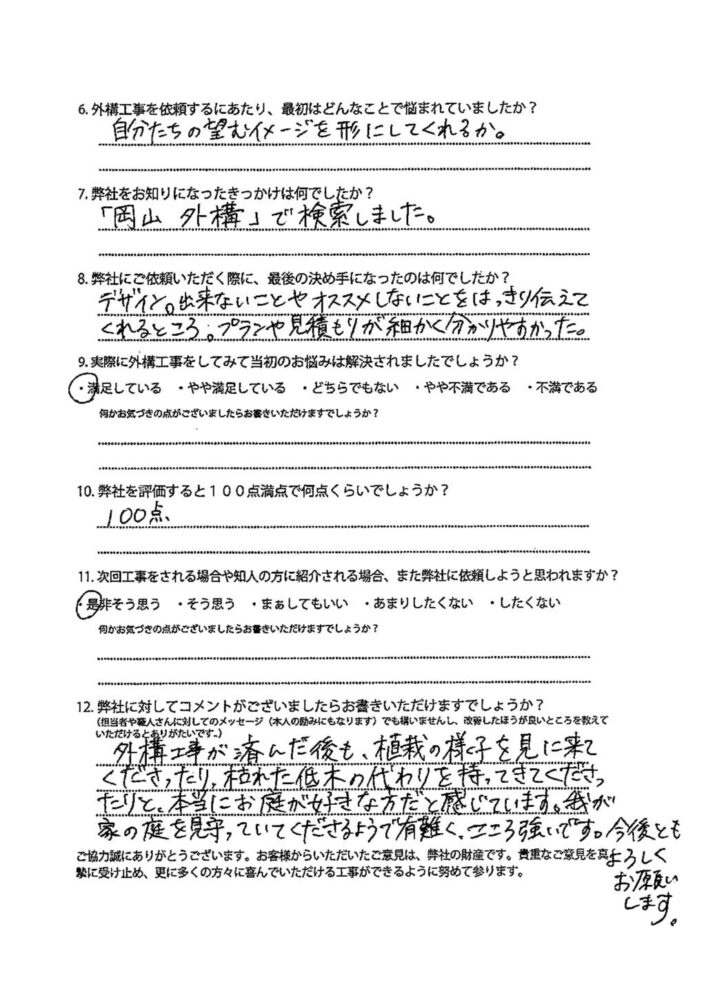 6. 外構工事を依頼するにあたり、最初はどんなことで悩まれていましたか？
自分たちの望むイメージを形にしてくれるか。
7. 弊社をお知りになったきっかけは何でしたか？
「岡山 外構」で検索しました。
8. 弊社にご依頼いただく際に、最後の決め手になったのは何でしたか？
デザイン。出来ないことやオススメしないことをはっきり伝えて
くれるところ。プランや見積もりが細かく分かりやすかった。
9. 実際に外構工事をしてみて当初のお悩みは解決されましたでしょうか？
・満足している ・やや満足している ・どちらでもない ・やや不満である ・不満である
何かお気づきの点がございましたらお書きいただけますでしょうか？
10. 弊社を評価すると１００点満点で何点くらいでしょうか？
100点
11. 次回工事をされる場合や知人の方に紹介される場合、また弊社に依頼しようと思われますか？
・是非そう思う ・そう思う ・まぁしてもいい ・あまりしたくない ・したくない
何かお気づきの点がございましたらお書きいただけますでしょうか？
12. 弊社に対してコメントがございましたらお書きいただけますでしょうか？
（担当者や職人さんに対してのメッセージ（本人の励みにもなります）でも構いませんし、改善したほうが良いところを教えて
いただけるとありがたいです。）
外構工事が済んだ後も、植栽の様子を見に来て
くださったり、枯れた低木の代わりを持ってきてくださっ
たりと、本当にお庭が好きな方だと感じています。我が
家の庭を見守っていてくださるようで有難く、こころ強いです。今後とも
よろしく
お願い
します。
ご協力誠にありがとうございます。お客様からいただいたご意見は、弊社の財産です。貴重なご意見を真
摯に受け止め、更に多くの方々に喜んでいただける工事ができるように努めて参ります。